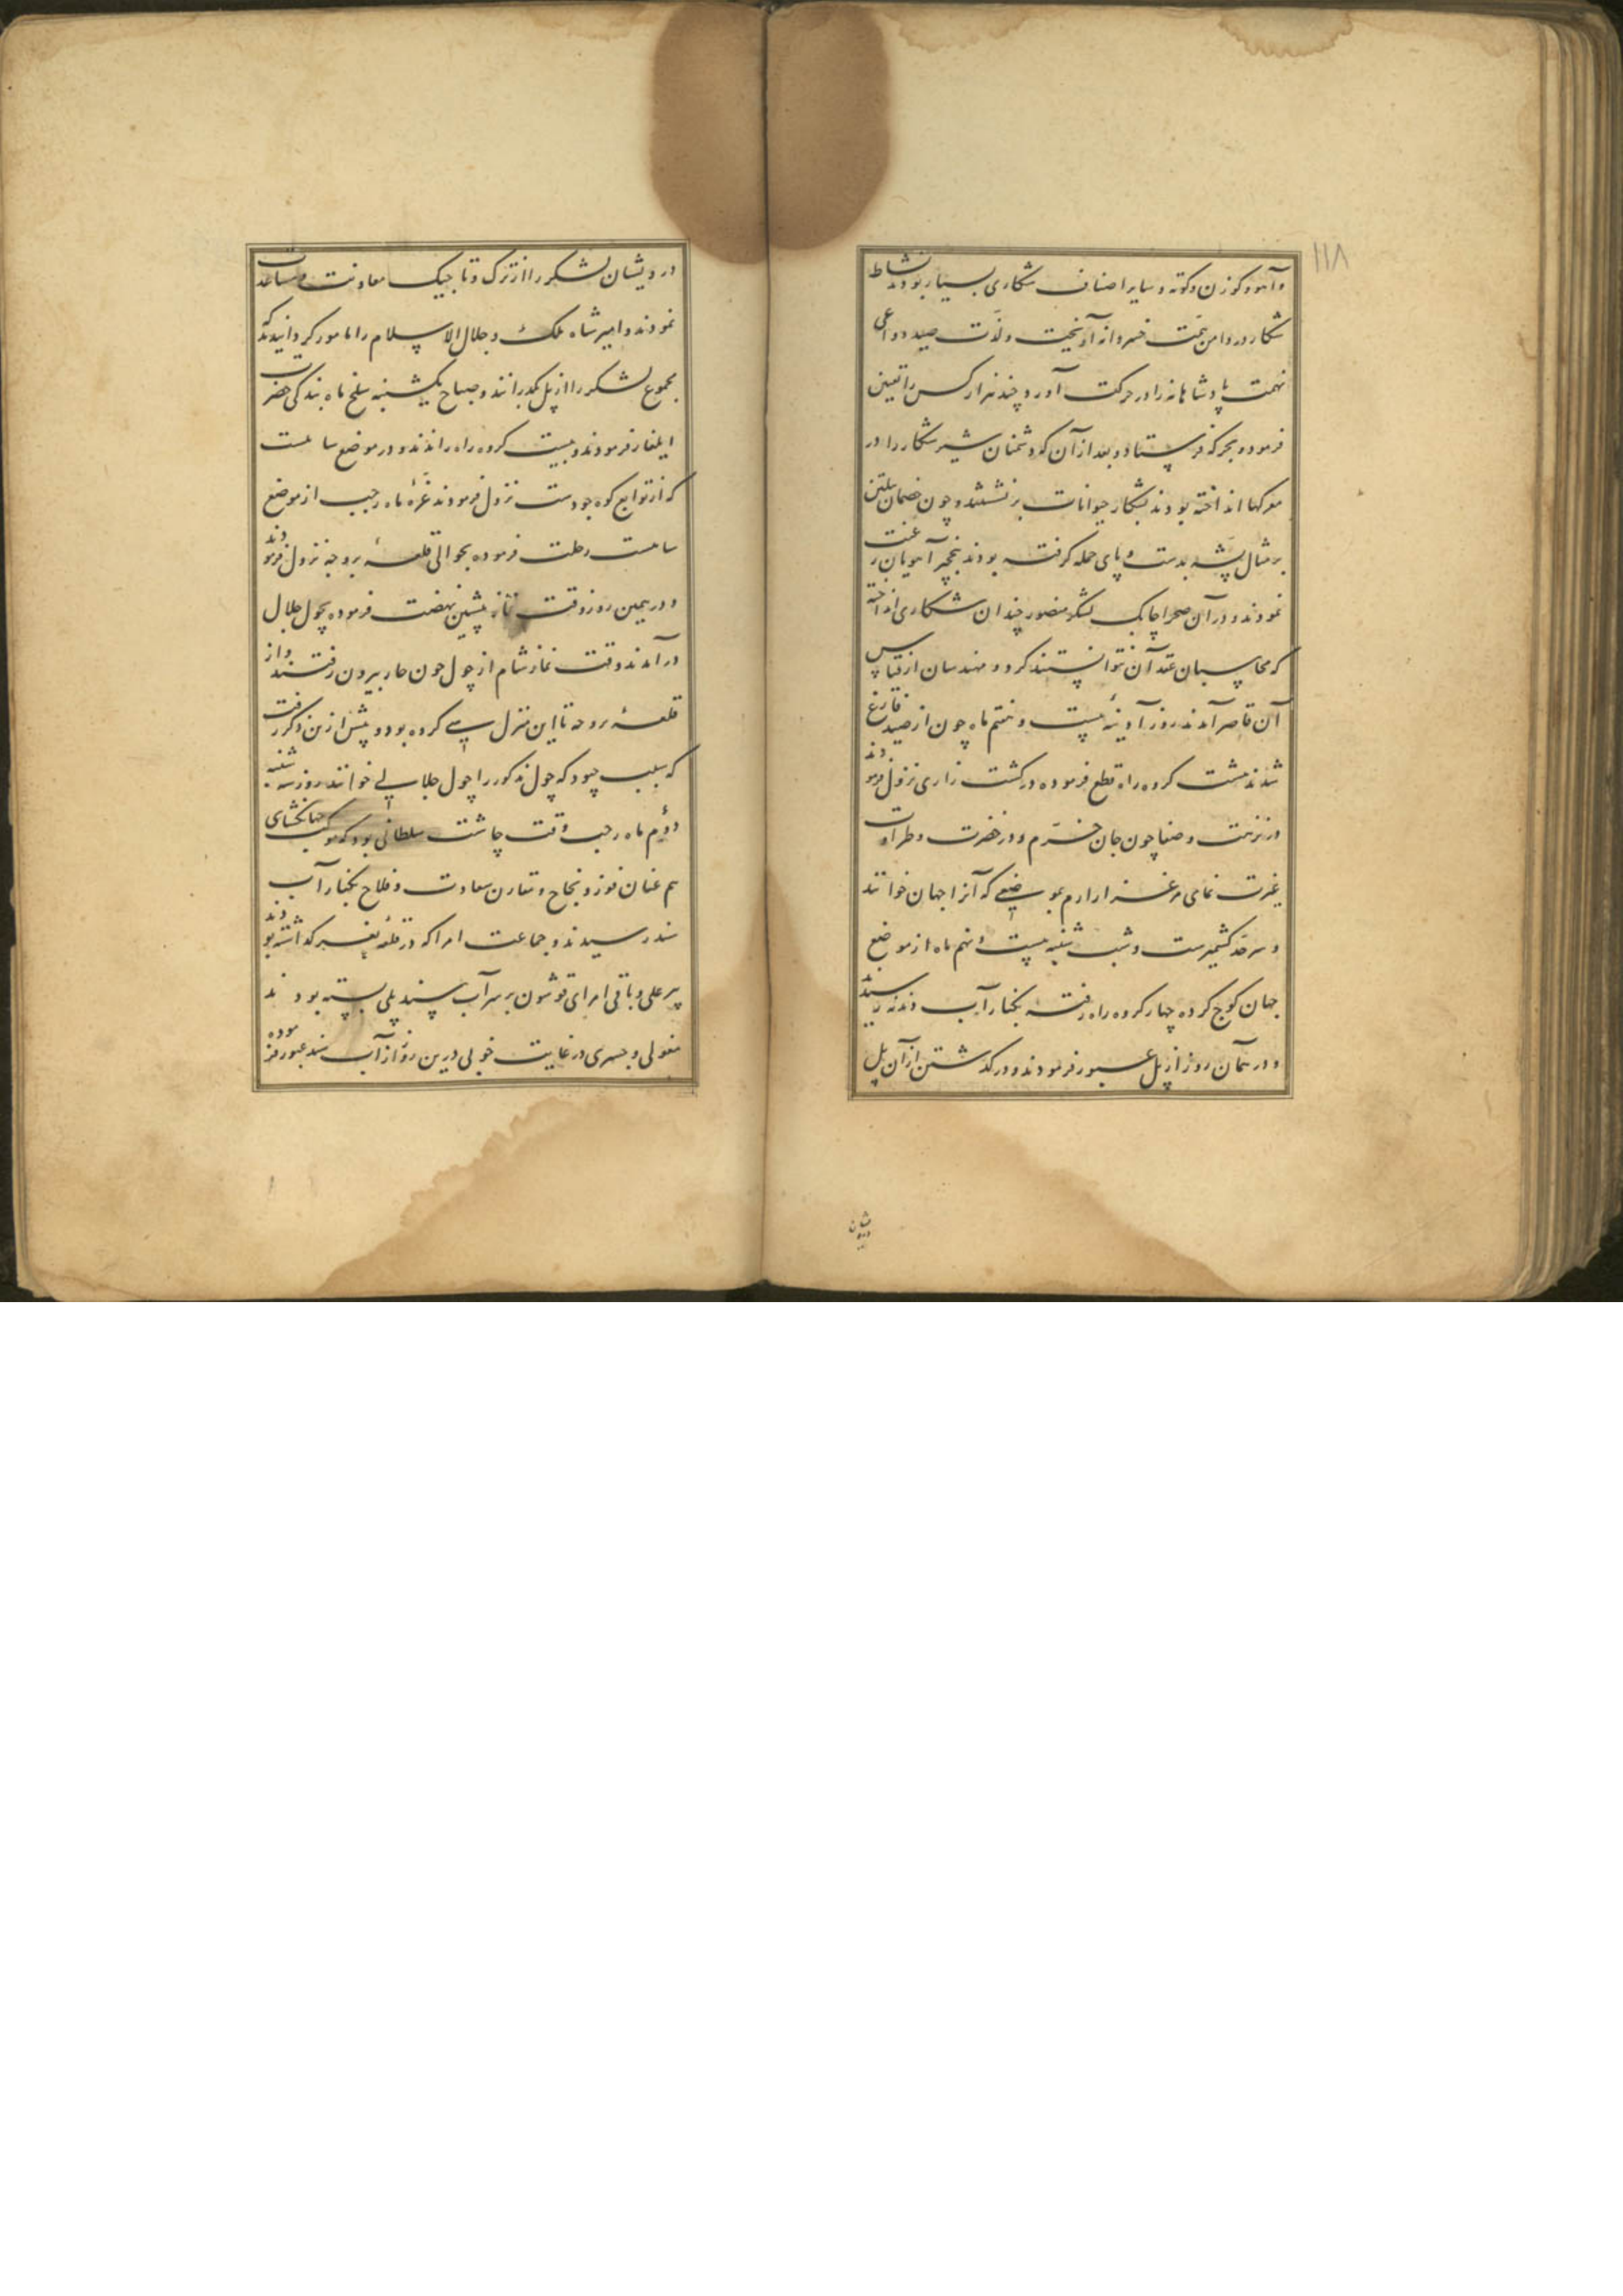 ۱۱۸
و آهو و کوزن و کوته و سایر اصناف شکاری بسیار بودند نشاط
شکار در دامن همت خسروانه آویخت و لذت صید دواعی
نهمت پادشاهانه را در حرکت آورد و چند هزار کس را تعیین
فرمود و بجرکه فرستاد و بعد از آن که دشمنان شیر شکار را در
معرکها انداخته بودند بشکار حیوانات برنشستند و چون خصمان پیلتن
بر مثال پشه بدست و پای حمله کرفته بودند بنخچیر آهویان رغبت
نمودند و در آن صحرا چابک لشکر منصور چندان شکاری انداخته
که محاسبان عقد آن نتوانستند کرد و مهندسان از قیاس
آن قاصر آمدند روز آدینه بیست و هشتم ماه چون از صید فارغ
شدند هشت کروه راه قطع فرموده در کشت زاری نزول فرمودند
در نزهت و صفا چون جان خرم و در خضرت و طراوت
غیرت نمای مرغزار ارم بموضعی که آنرا جهان خوانند
و سرحد کشمیرست و شب شنبه بیست و نهم ماه از موضع
جهان کوچ کرده چهار کروه راه رفته بکنار آب دندنه رسیدند
و در همان روز از پل عبور فرمودند و در کذشتن از آن پل
درویشان
درویشان لشکر را از ترک و تاجیک معاونت و مساعدت
نمودند و امیر شاه ملک و جلال الاسلام را مامور کردانیدند که
مجموع لشکر را از پل بکذرانند و صباح یکشنبه سلخ ماه بندکی حضرت
ایلغار فرمودند و بیست کروه راه راندند و در موضع سامست
که از توابع کوه جودست نزول فرمودند غره ماه رجب از موضع
سامست رحلت فرموده بحوالی قلعه بروجه نزول فرمودند
و در همین روز وقت نماز پیشین نهضت فرموده بچول جلال
درآمدند وقت نماز شام از چول چون حار بیرون رفتند و از
قلعه بروجه تا این منزل سی کروه بود و پیش ازین ذکر رفت
که سبب چبود که چول مذکور را چول جلالی خوانند روز سه شنبه
دوم ماه رجب وقت چاشت سلطانی بود که موکب جهانکشای
هم عنان فوز و نجاح و مقارن سعادت و فلاح بکنار آب
سند رسیدند و جماعت امرا که در قلعه نغر کذاشته بودند
پیر علی و باقی امرای قوشون بر سر آب سند پلی بسته بودند
مغولی و جسری در غایت خوبی درین روز از آب سند عبور فرموده